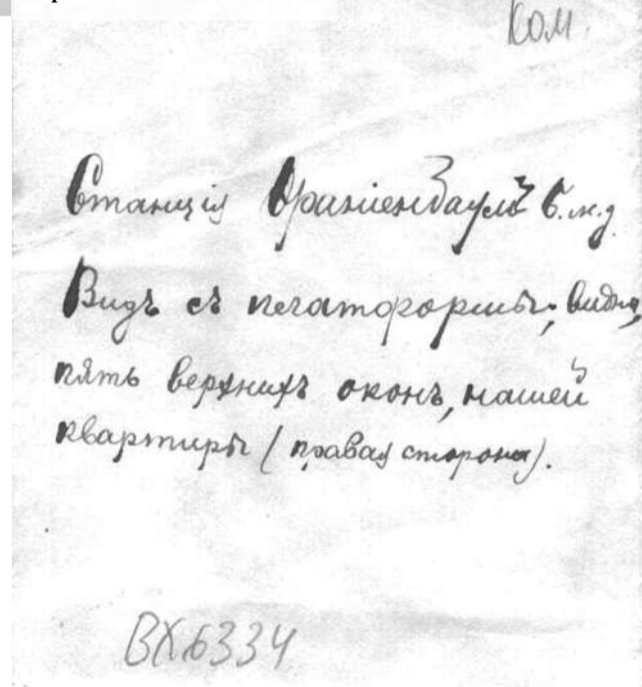 Ком.
Станція Ораніенбаумъ Б.ж.д
Видъ съ платформы; видны
пять верхнихъ оконъ, нашей
квартиры (правая сторона).
ВХ 6334